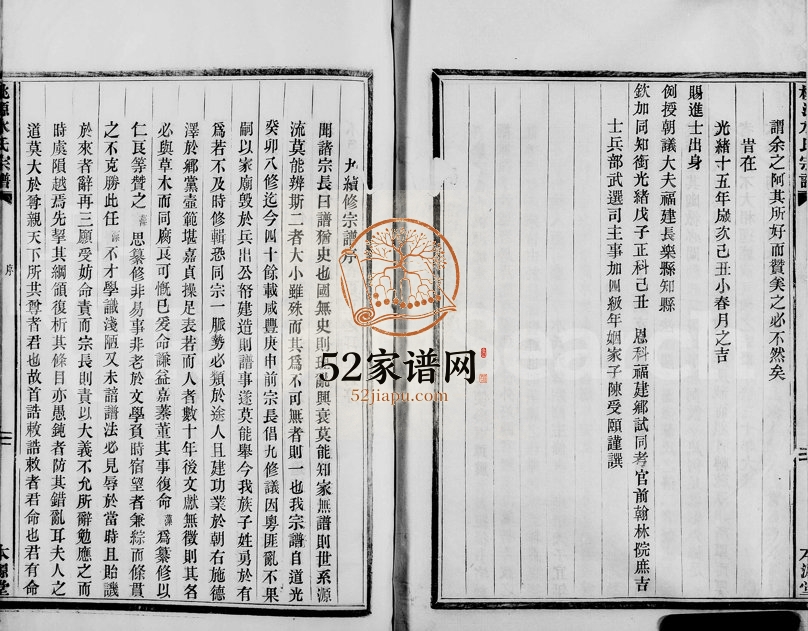 謂余之阿其所好而贊美之必不然矣
旹在
光緒十五年歲次己丑小春月之吉
賜進士出身
例授朝議大夫福建長樂縣知縣
欽加同知銜光緒戊子正科己丑 恩科福建鄉試同考官前翰林院庶吉
士兵部武選司主事加四級年姻家子陳受頤謹譔
本源堂
桃源水氏宗譜
序
九續修宗譜序
聞諸宗長曰譜猶史也國無史則理亂興衰莫能知家無譜則世系源
流莫能辨斯二者大小雖殊而其爲不可無者則一也我宗譜自道光
癸卯八修迄今四十餘載咸豐庚申前宗長倡九修議因粵匪亂不果
嗣以家廟毀於兵出公帑建造則譜事遂莫能舉今我族子姓勇於有
爲若不及時修輯恐同宗一脈勢必類於途人且建功業於朝右施德
澤於鄉黨壼範堪嘉貞操足表若而人者數十年後文獻無徵則其名
必與草木而同腐良可慨已爰命謙益嘉蓁董其事復命 藻 爲纂修以
仁良等贊之 藻 思纂修非易事非老於文學負時宿望者兼綜而條貫
之不克勝此任 藻 不才學識淺陋又未諳譜法必見辱於當時且貽譏
於來者辭再三願受妨命責而宗長則責以大義不允所辭勉應之而
時虞隕越焉先挈其綱領復析其條目亦愚鈍者防其錯亂耳夫人之
道莫大於尊親天下所共尊者君也故首詩敕誥敕者君命也君有命
本源堂
52家谱网
52jiapu.com